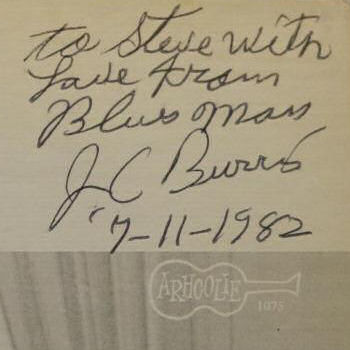 to Steve with
Love from
Blues Man
J C Burris
7-11-1982
ARHOOLIE
1075